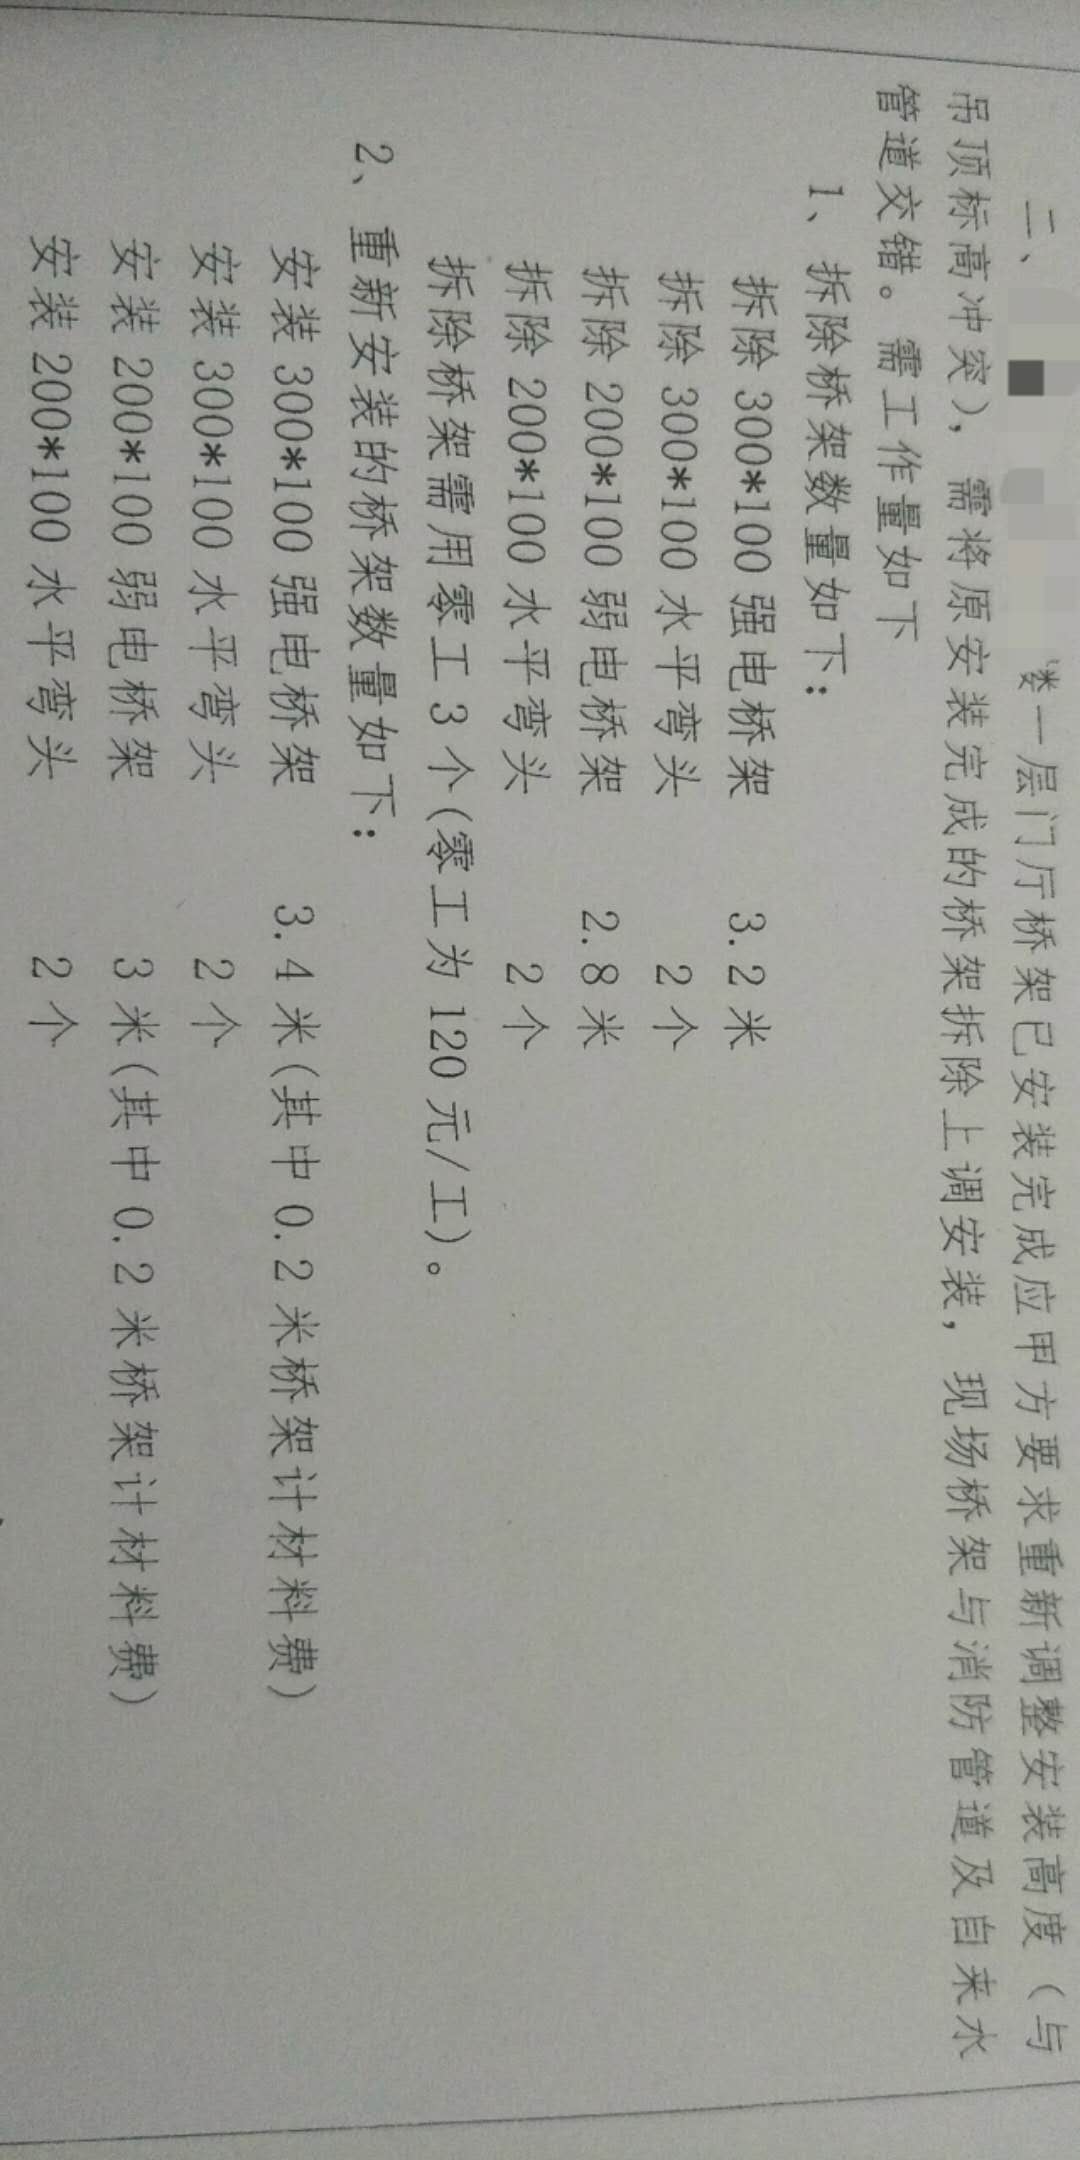 二、 楼一层门厅桥架已安装完成应甲方要求重新调整安装高度（与
吊顶标高冲突），需将原安装完成的桥架拆除上调安装，现场桥架与消防管道及自来水
管道交错。需工作量如下
1、拆除桥架数量如下：
拆除 300*100 强电桥架 3.2 米
拆除 300*100 水平弯头 2 个
拆除 200*100 弱电桥架 2.8 米
拆除 200*100 水平弯头 2 个
拆除桥架需用零工 3 个(零工为 120 元/工)。
2、重新安装的桥架数量如下：
安装 300*100 强电桥架 3.4 米(其中 0.2 米桥架计材料费)
安装 300*100 水平弯头 2 个
安装 200*100 弱电桥架 3 米(其中 0.2 米桥架计材料费)
安装 200*100 水平弯头 2 个